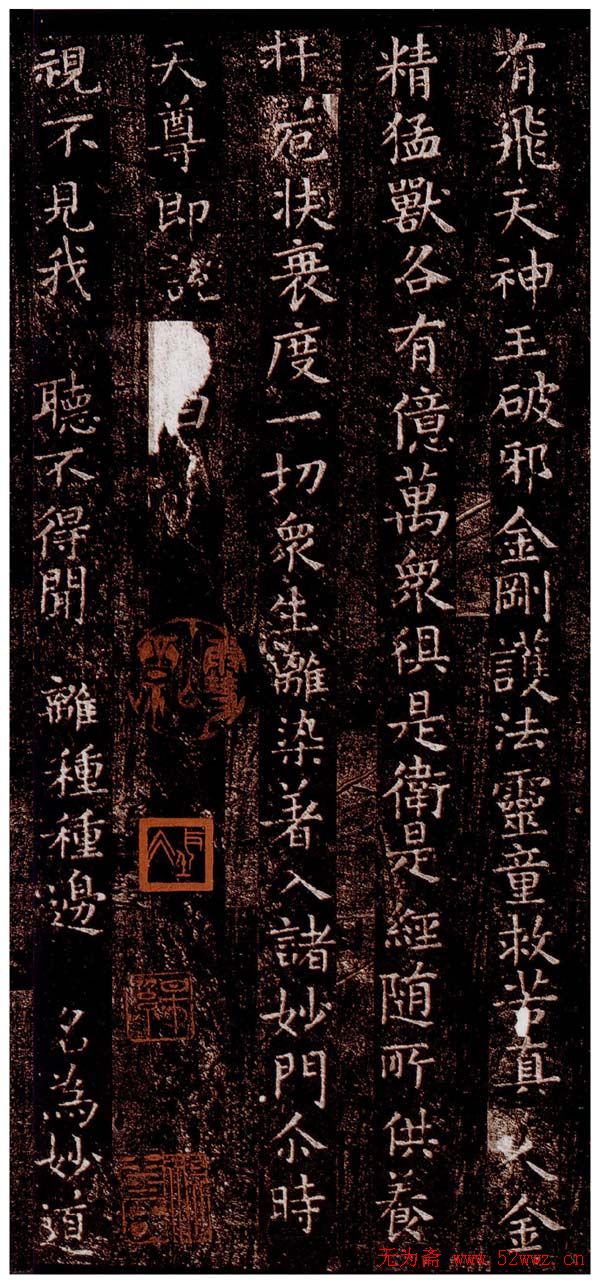 有飛天神王破邪金剛護法靈童救苦真人金
精猛獸各有億萬衆俱是衛是經随所供養
扞厄扶衰度一切衆生離染著入諸妙門尒時
天尊即說 曰
視不見我 聽不得聞 離種種邊 名為妙道
无为斋 www.52wwz.cn